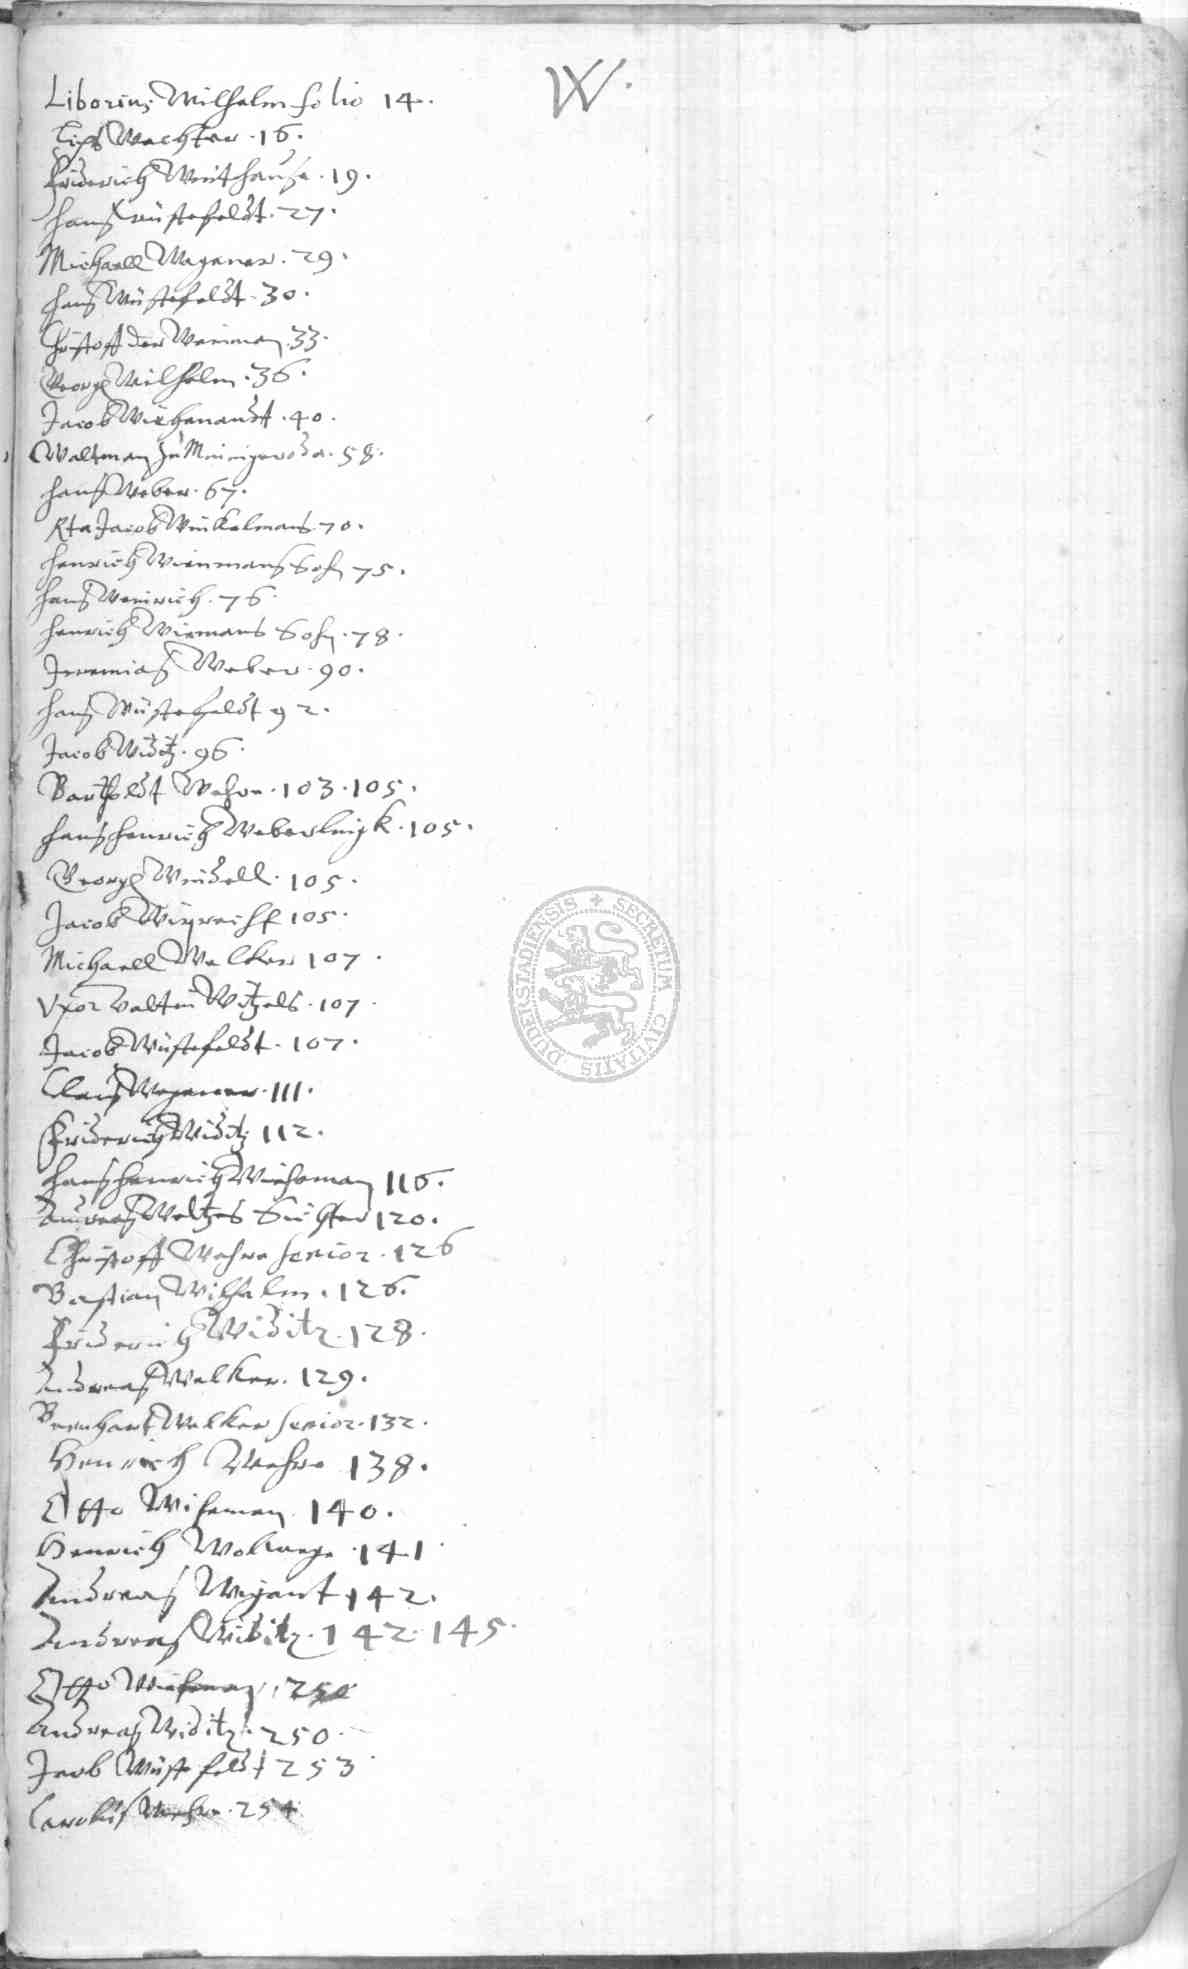 W.
Liborius Wilhelm folio 14.
Lips Wachter. 16.
Friderich Winthause. 19.
Hans wüstefeldt. 27.
Michaell Wagener. 29.
Hans Wüstefeldt. 30.
Christoff der Weinman. 33.
Georg Wilhelm. 36.
Jacob Wiegenandt. 40.
Waltman zu Mningeroda. 58.
Hans Weber. 67.
Rta Jacob Winkelmans 70.
Henrich Wienmans Sohn 75.
Hans Weinrich. 76.
Henrich Wiemans Sohn. 78.
Jeremias Weber. 90.
Hans Wüstefeldt 92.
Jacob Widitz. 96.
Bartholdt Wehre. 103. 105.
Hans Henrich Weberlingk. 105.
George Weidell. 105.
Jacob Wiprecht 105.
Michaell Welker 107.
Vxor Valtin Witzels. 107.
Jacob Wüstefeldt. 107.
Claus Wegener. 111.
Friderich Widitz 112.
Hans Henrich Wieheman 116.
Andreas Weltzes 120.
Christoff Wehre senior. 126
Bastian Wilhelm. 126.
Friderich Widitz. 128.
Andreas Welker. 129.
Bernhart Welker senior. 132.
Henrich Wehre 138.
Otto Wiheman. 140.
Henrich Wolwege. 141.
Andreas Wigant 142.
Andreas Widitz. 142. 145.
Otto Wieheman, 250
Andreas Widitz. 250.
Jacob Wüstefeldt 253
Carolus Wehre. 254
SECRETUM CIVITATIS DUDERSTADIENSIS